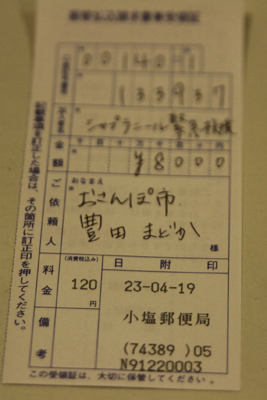 振替払込請求書兼受領証
00140-1
133937
シャプラニール緊急救援
金額
¥8000
おなまえ
ご依頼人
おさんぽ市
豊田 まどか
様
料金
(消費税込み)
120円
日附印
23-04-19
小塩郵便局
備考
(74389)05
N91220003
記載事項を訂正した場合は、その箇所に訂正印を押してください。
この受領証は、大切に保管してください。